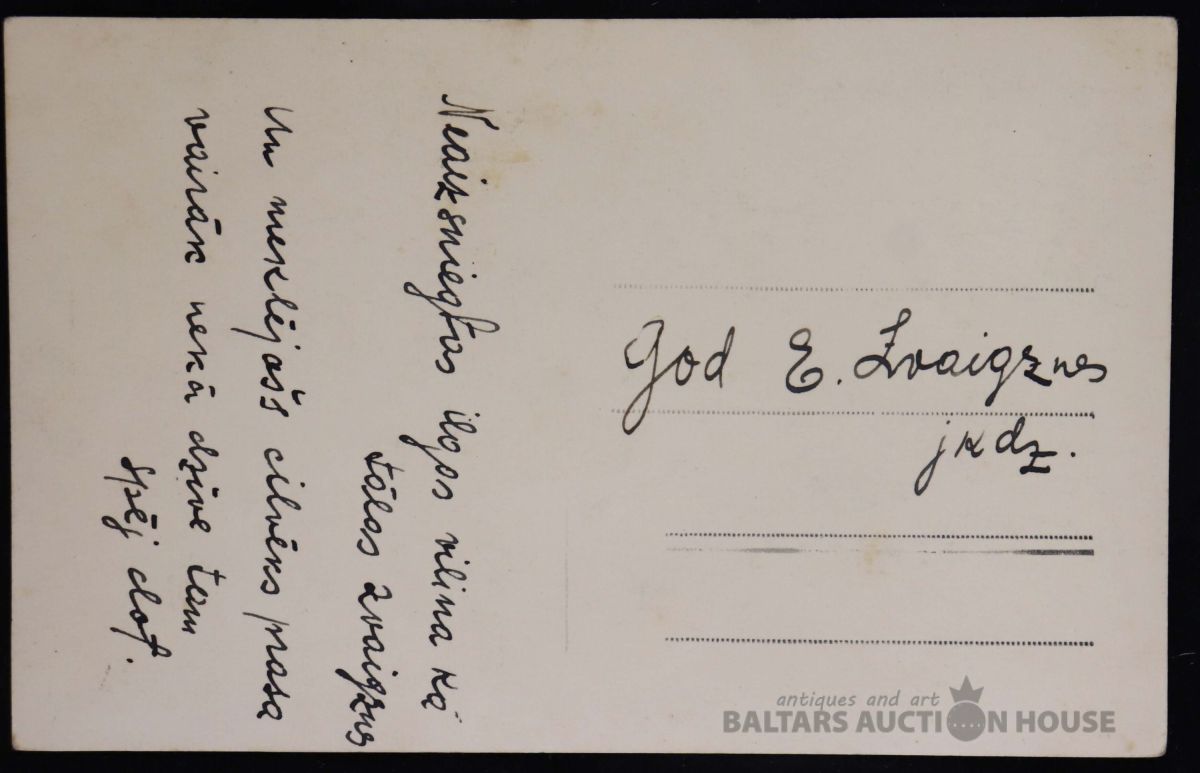 Neaizsniegtas ilgas vilina kā
tālas zvaigznes
Un meklējošs cilvēks prasa
vairāk nekā dzīve tam
spēj dot.
God E. Zvaigznes
jkdz.
antiques and art
BALTARS AUCTION HOUSE